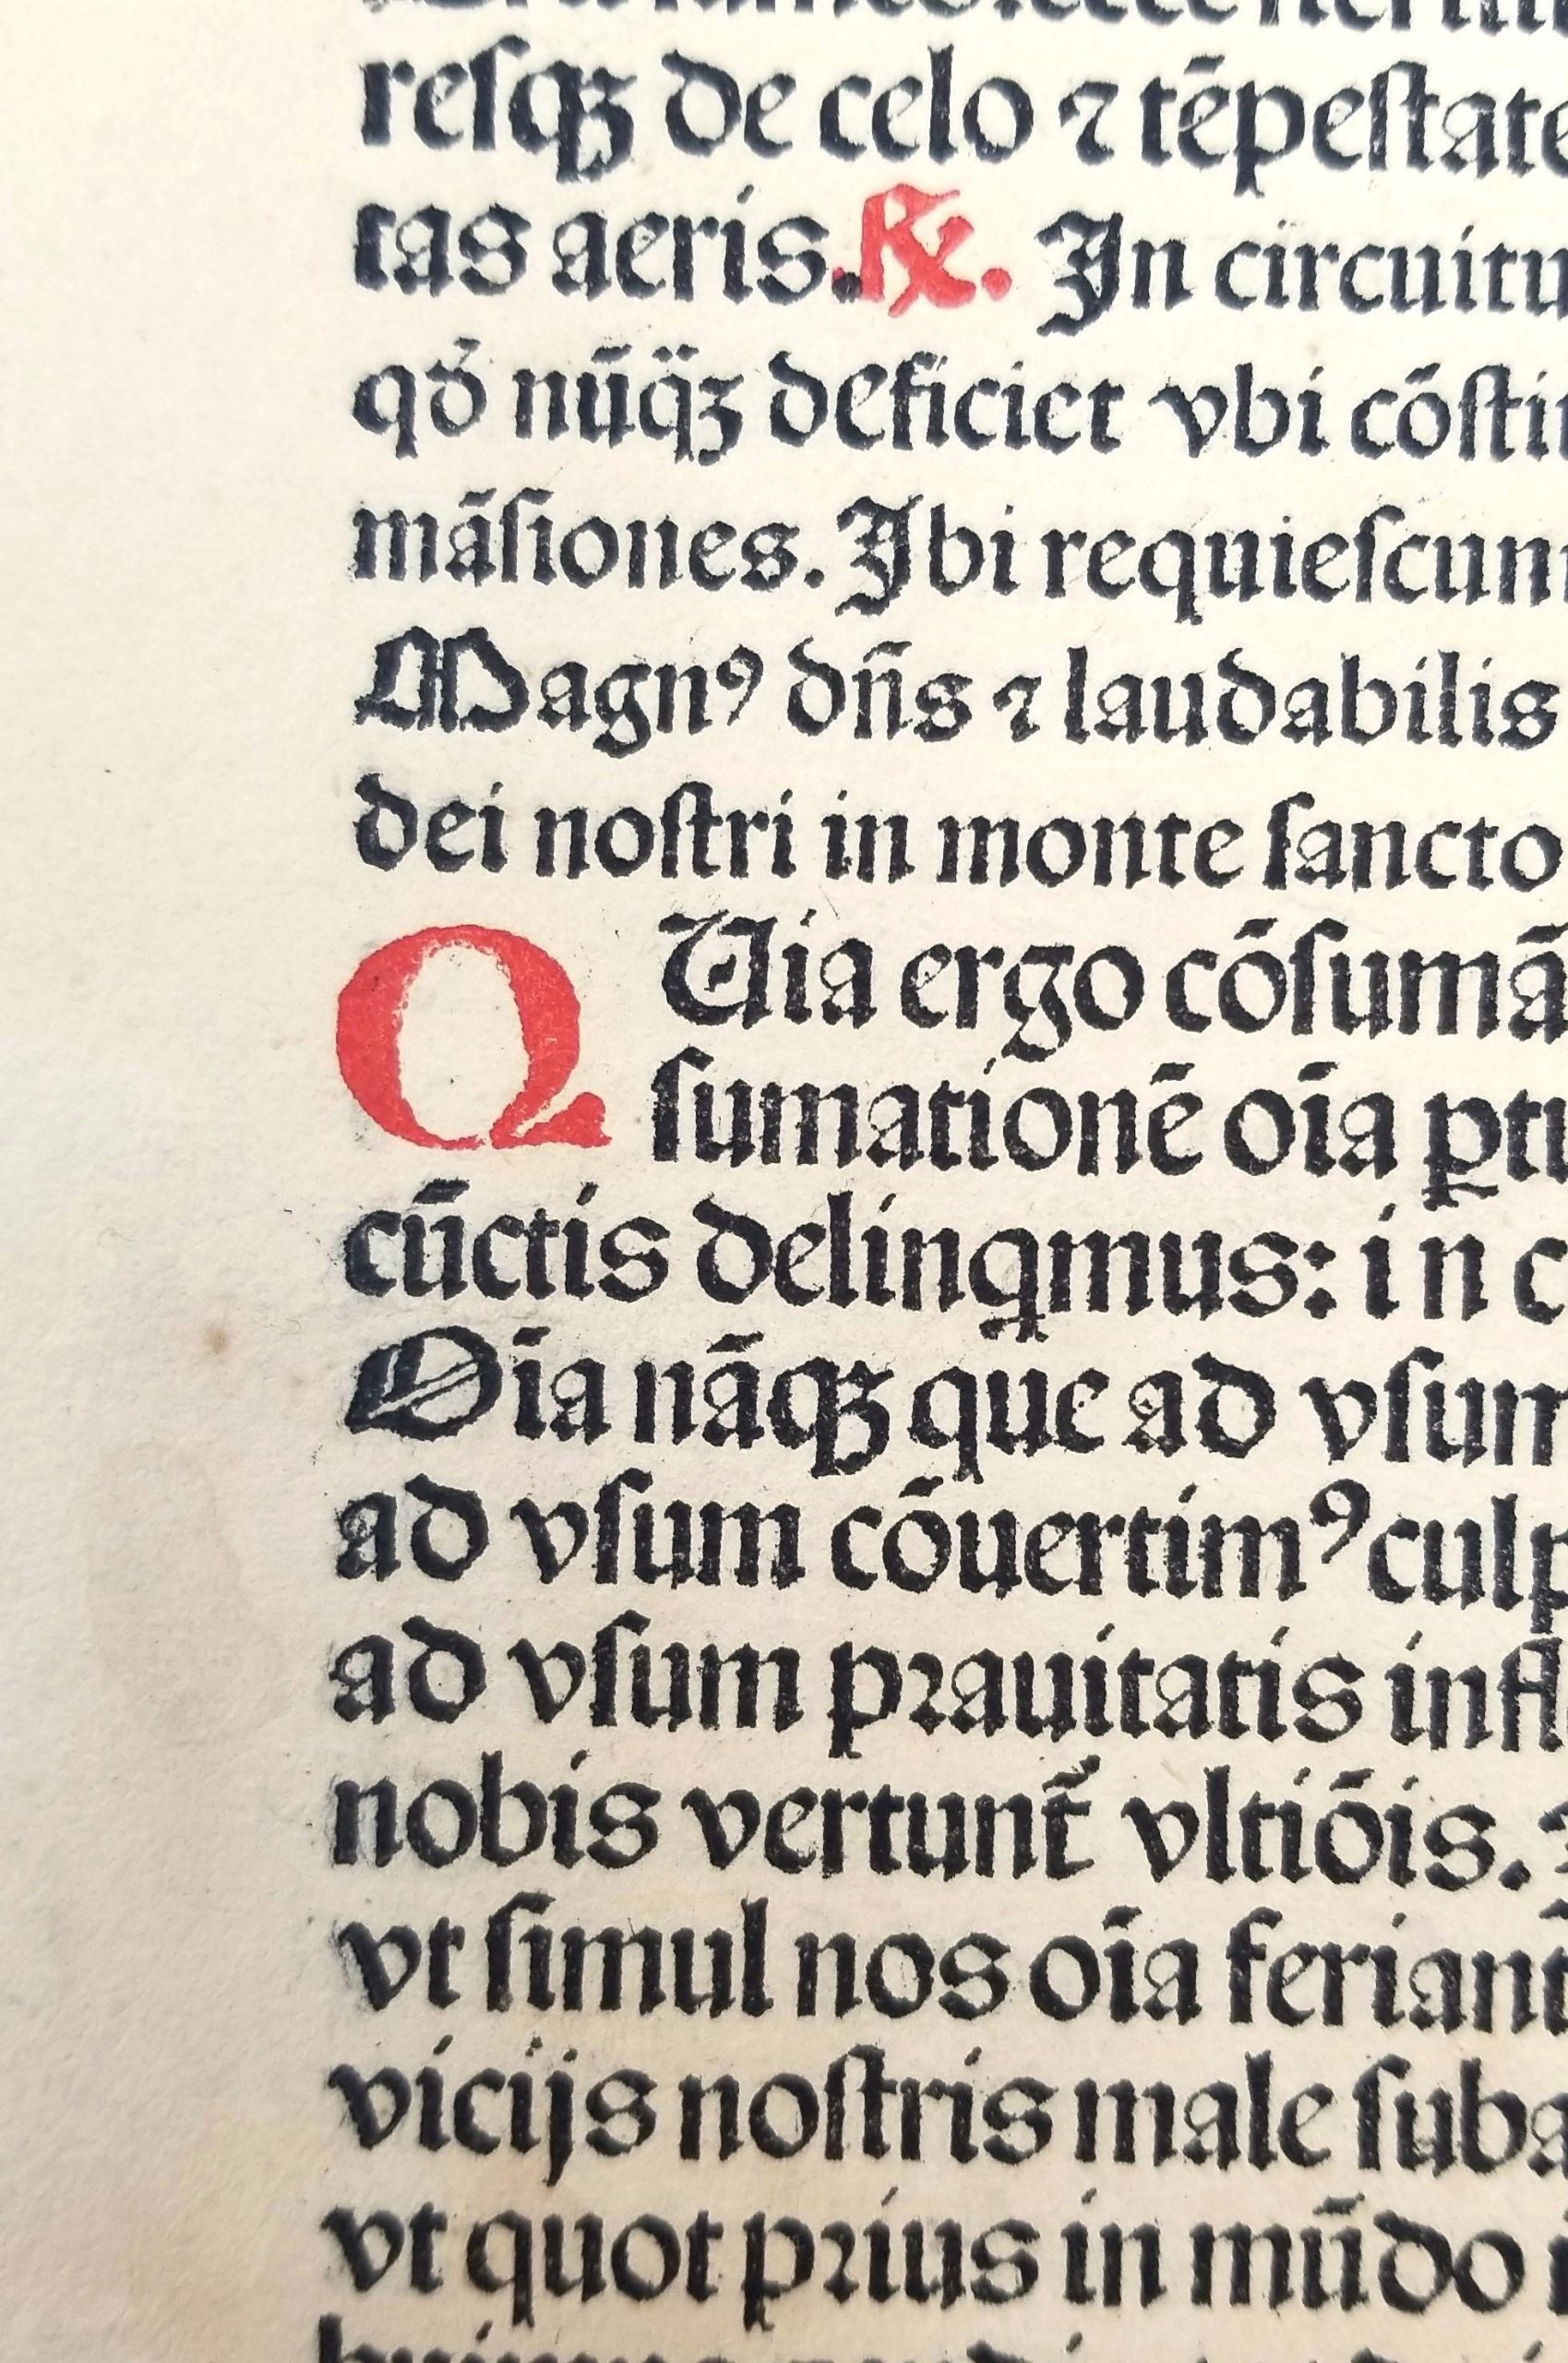 reſqꝫ de celo ⁊ tēpeſtate
ras aeris. ℟. In circuitu
qđ nūq̈ꝫ deficiet vbi cōſti
māſiones. Ibi requieſcun
Magnꝰ dn̄s ⁊ laudabilis
dei noſtri in monte ſancto
QUia ergo cōſumā
ſumationē oīa ꝑtu
cūctis delinqͥmus: in c
Oīa nāqꝫ que ad vſum
ad vſum cōuertimꝰ culp
ad vſum prauitatis infl
nobis vertunt᷑ vltiōis.
vt ſimul nos oīa feriant
vicijs noſtris male ſuba
vt quot prius in mūdo